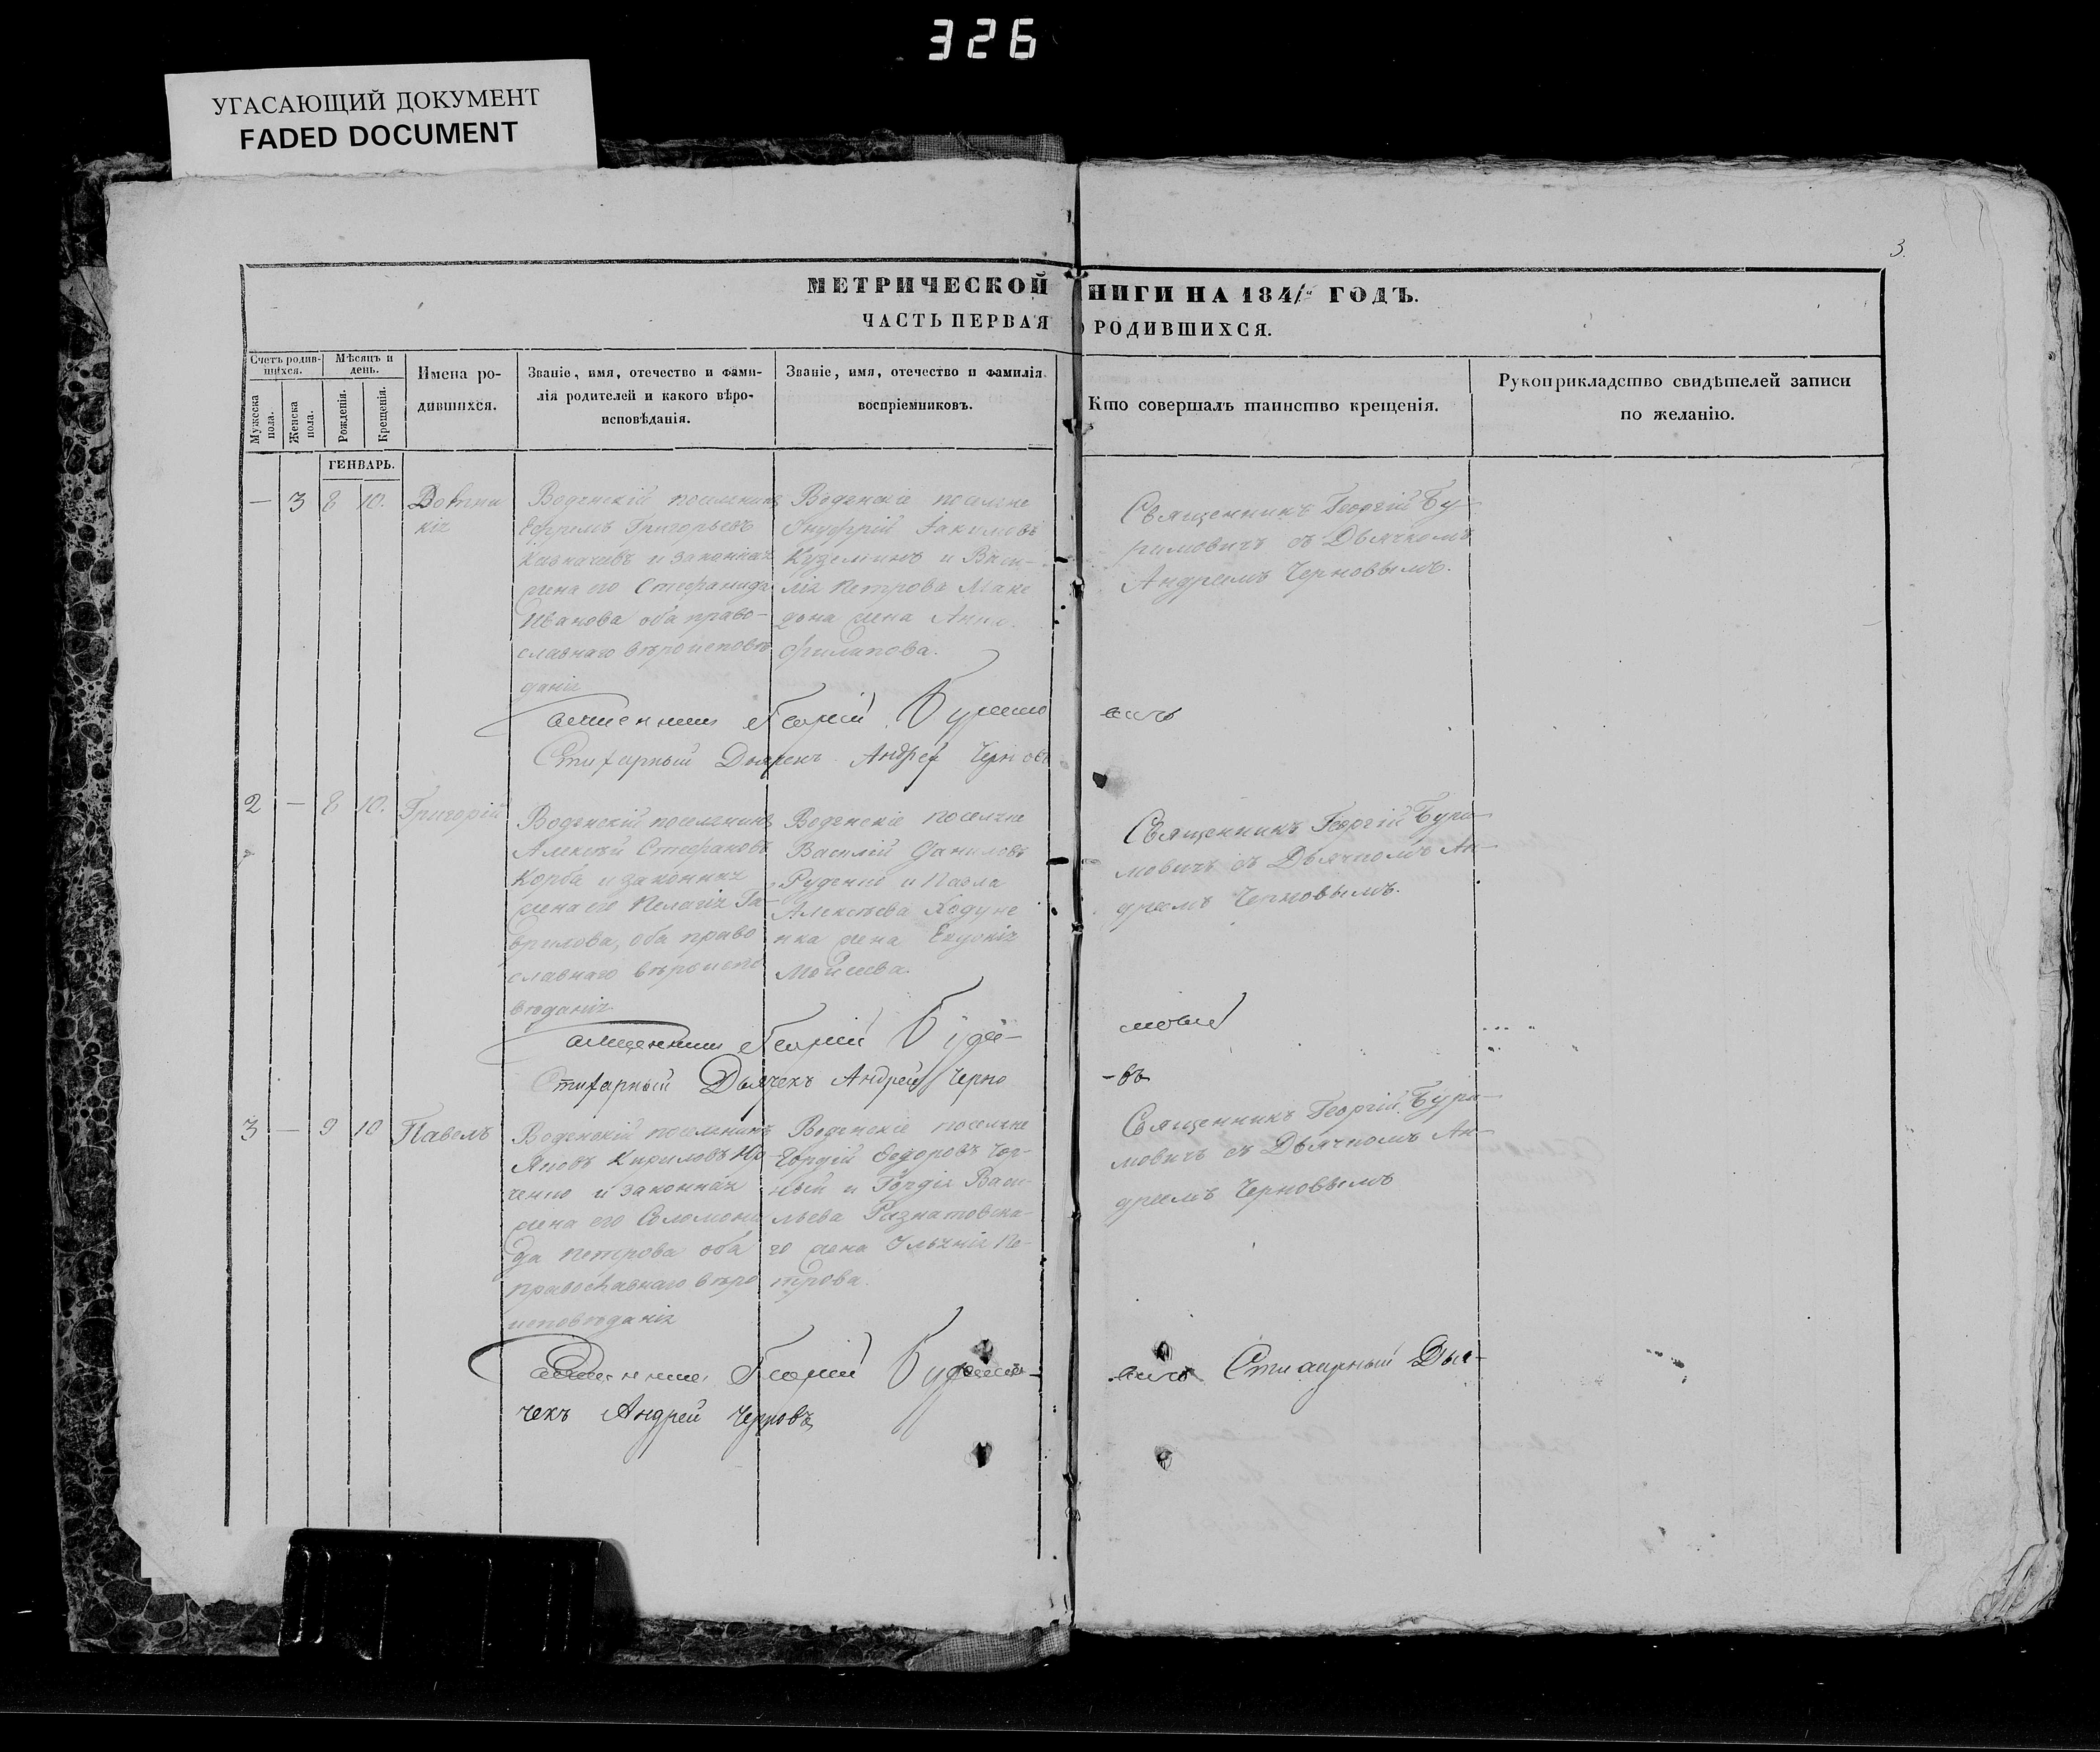 326
УГАСАЮЩИЙ ДОКУМЕНТ
FADED DOCUMENT
3.
МЕТРИЧЕСКОЙ НИГИ НА 1841 ГОДЪ.
ЧАСТЬ ПЕРВАЯ О РОДИВШИХСЯ.
Счетъ родив-
шихся.
Мужеска
пола.
Женска
пола.
Мѣсяцъ и
день.
Рожденія.
Крещенія.
Имена ро-
дившихся.
Званіе, имя, отечество и фами-
лія родителей и какого вѣро-
исповѣданія.
Званіе, имя, отечество и фамилія
воспріемниковъ.
Кто совершалъ таинство крещенія.
Рукоприкладство свидѣтелей записи
по желанію.
ГЕНВАРЬ.
— 3 8 10.
Водянскій поселянинъ
Ефремъ Григорьевъ
и законная
жена его Стефанида
Иванова оба право-
славнаго вѣроисповѣ
данія
Водянскіе поселяне
Онуфрій Іакимовъ
Куземинъ и Васи-
лія Петрова Маке
дона жена Анна
Филипова.
Священникъ Георгій Бу-
римовичъ съ Дьячкомъ
Андреемъ Черновымъ.
Священникъ Георгій Буримо
вичъ
Стихарный Дьячекъ Андрей Черновъ
2 — 8 10. Григорій
Водянскій поселянинъ
Алексѣй Стефановъ
Корба и законная
жена его Пелагія Га-
врилова, оба право
славнаго вѣроиспо
вѣданія
Водянскіе поселяне
Василій Даниловъ
Руденко и Павла
Алексѣева Ходуне
нка жена Евдокія
Моисеева.
Священникъ Георгій Бури-
мовичъ съ Дьячкомъ Ан-
дреемъ Черновымъ.
Священникъ Георгій Бури-
мович
Стихарный Дьячекъ Андрей Черно
-въ
3 — 9 10 Павелъ
Водянскій поселянинъ
Яковъ Кириловъ
ченко и законная
жена его Соломони
да Петрова оба
православнаго вѣро
исповѣданія
Водянскіе поселяне
Гордей Федоровъ Чор-
ный и Гордія Васи-
льева Разнатовска-
го жена Ульянія Пе-
трова.
Священникъ Георгій Бури-
мовичъ съ Дьячкомъ Ан-
дреемъ Черновымъ
Священникъ Георгій Буримо-
вичъ Стихарный Дья-
чекъ Андрей Черновъ